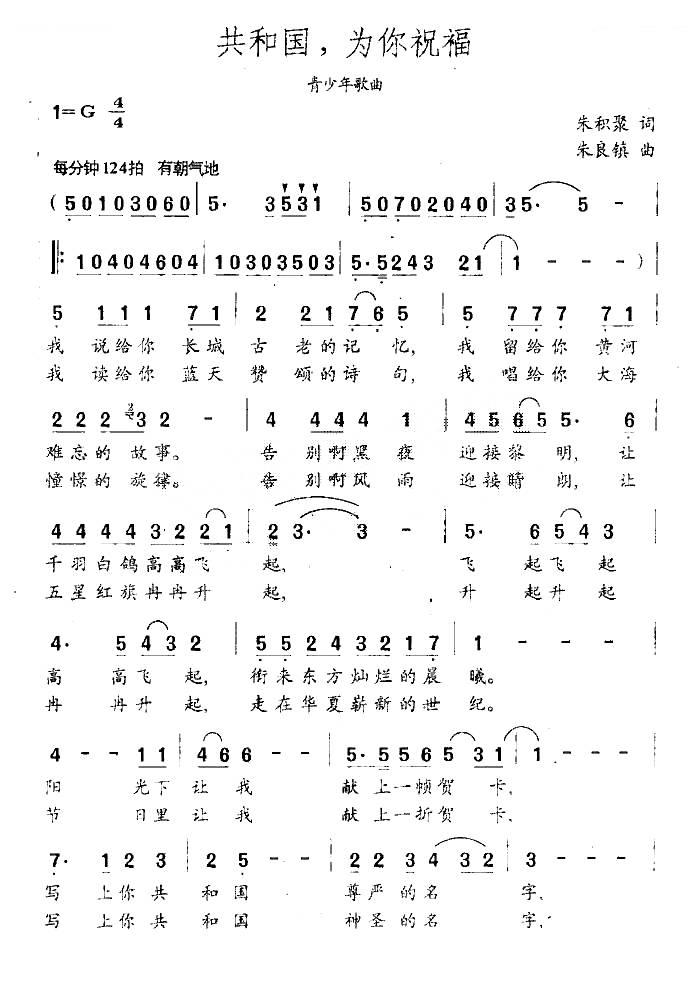 共和国，为你祝福
青少年歌曲
1=G 4/4
朱积聚 词
朱良镇 曲
每分钟124拍 有朝气地
( 5 0 1 0 3 0 6 0 | 5· 3 5 3 1 | 5 0 7 0 2 0 4 0 | 3 5· 5 - |
|: 1 0 4 0 4 6 0 4 | 1 0 3 0 3 5 0 3 | 5· 5 2 4 3 2 1 | 1 - - - ) |
5 1 1 1 7 1 | 2 2 1 7 6 5 | 5 7 7 7 7 1 |
我 说给你 长城 古 老的记 忆, 我 留给你 黄河
我 读给你 蓝天 赞 颂的诗 句, 我 唱给你 大海
2 2 2 3 2 2 - | 4 4 4 4 1 | 4 5 6 5 5· 6 |
难忘的 故事。 告 别啊黑 夜 迎接黎 明, 让
憧憬的 旋律。 告 别啊风 雨 迎接晴 朗, 让
4 4 4 4 3 2 2 2 1 | 2 3· 3 - | 5· 6 5 4 3 |
千羽白鸽高高飞 起, 飞 起飞 起
五星红旗冉冉升 起, 升 起升 起
4· 5 4 3 2 | 5 5 2 4 3 2 1 7 | 1 - - |
高 高飞 起, 衔来东方灿烂的晨 曦。
冉 冉升 起, 走在华夏崭新的世 纪。
4 - - 1 1 | 4 6 6 - - | 5· 5 5 5 3 1 | 1 - - |
阳 光下 让我 献 上一帧贺 卡,
节 日里 让我 献 上一折贺 卡,
7· 1 2 3 | 2 5 - - | 2 2 2 3 4 3 2 | 3 - - |
写 上你 共 和国 尊严 的名 字,
写 上你 共 和国 神圣 的名 字,